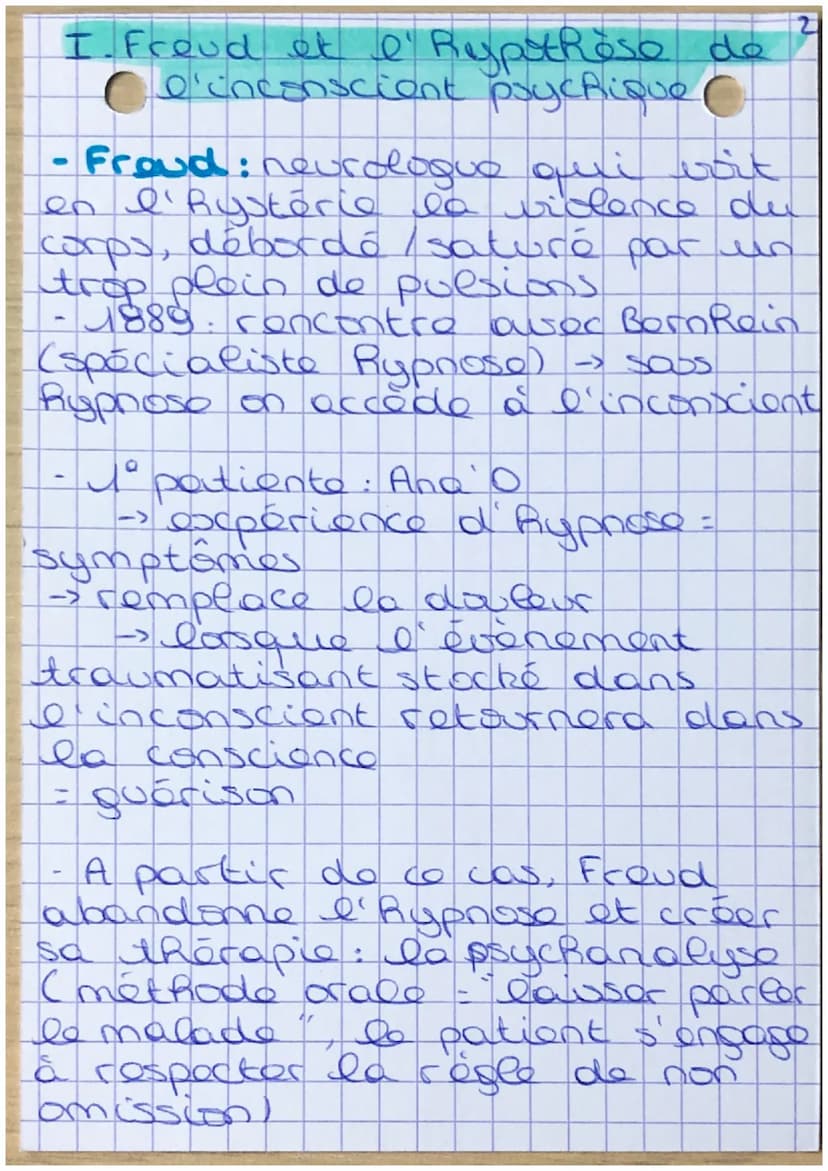 2
I. Freud et l'hypothèse de
l'inconscient psychique
- Freud : neurologue qui voit
en l'hystérie la violence du
corps, débordé / saturé par un
trop plein de pulsions
- 1889 : rencontre avec Bernhein
(spécialiste hypnose) → sous
hypnose on accède à l'inconscient
- 1° patiente : Ana'O
→ expérience d'hypnose =
symptômes
→ remplace la douleur
→ lorsque l'évènement
traumatisant stocké dans
l'inconscient retournera dans
la conscience
= guérison
- A partir de ce cas, Freud
abandonne l'hypnose et créer
sa thérapie : la psychanalyse
(méthode orale = "laisser parler
le malade", le patient s'engage
à respecter la règle de non
omission)